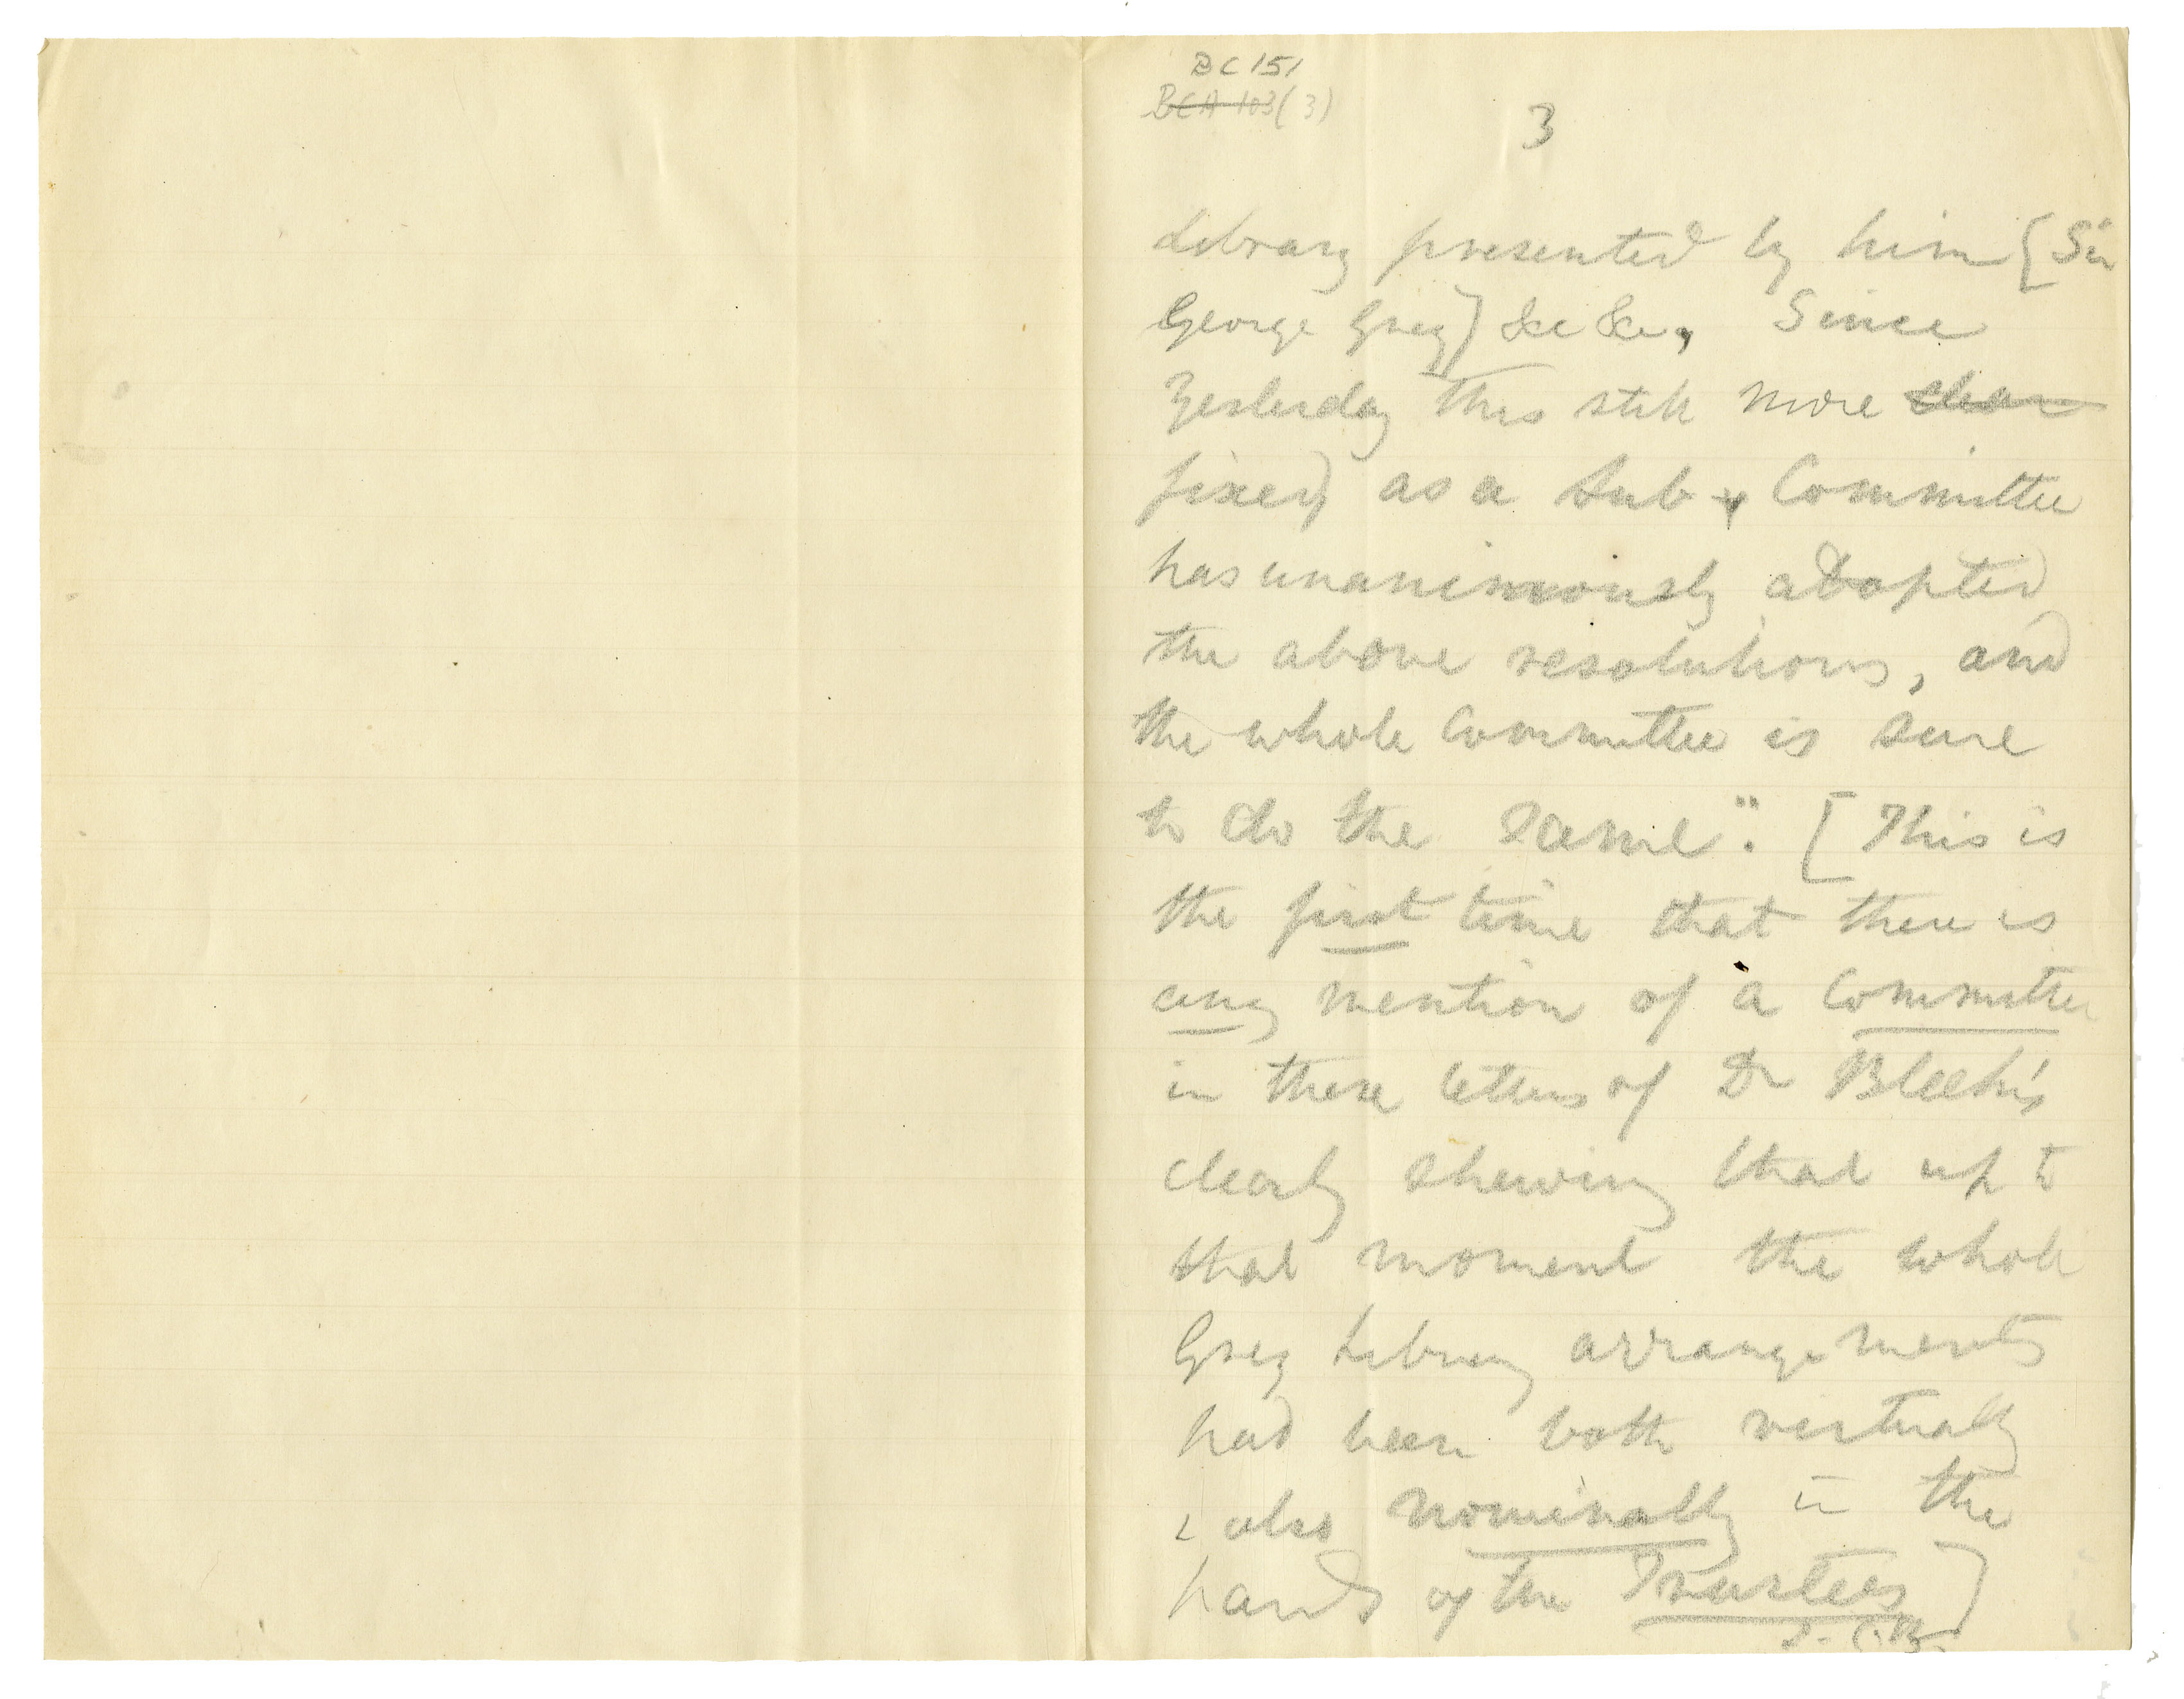 BC 151
BCA 103 (3)
3
Library presented by him [Sir
George Grey] &c &c, Since
Yesterday this still more clear
fixed, as a Sub-Committee
has unanimously adopted
the above resolutions, and
the whole Committee is sure
to do the same". [This is
the first time that there is
any mention of a Committee
in these letters of Dr Bleek's
clearly shewing that up to
that moment the whole
Grey Library arrangements
had been both virtually
& also nominally in the
hands of the Trustees]
J. C. B.